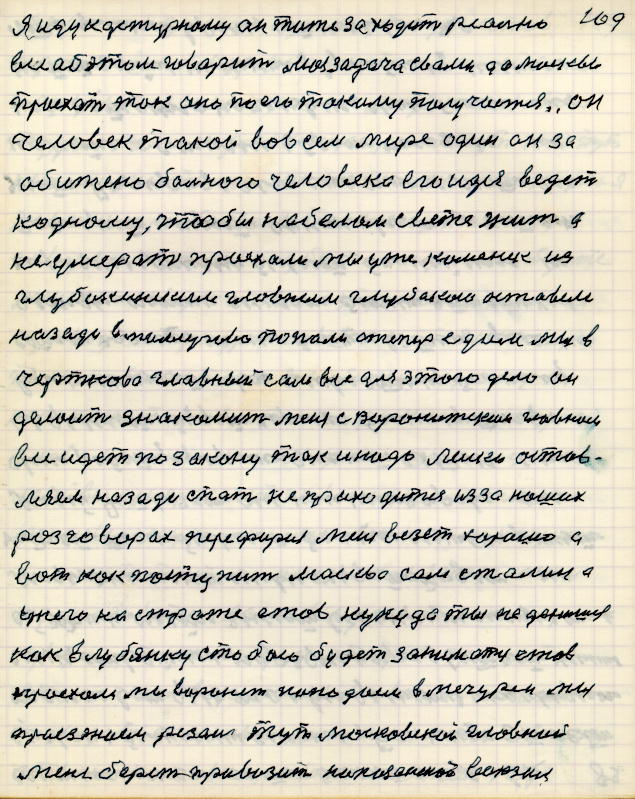 Я иду к дежурному он тоже заходит реально 169
все аб этом говарит моя задача свами до москвы
проехат так оно по его такому получается,, он
человек такой вовсем мире один он за
обижено болного человека его идея ведет
кодному, чтобы на белом свете жит а
не умерат проехали мы уже каменск из
глубокинским главным глубокою оставили
назади в попали а тепер едим мы в
чертково главный сам все для этого дело он
делоит знакомит меня с Воронижским главном
все идет по закону так и нада Миски остов-
ляем назади спат не приходится из за наших
розговорах перефирия меня везет хорошо а
вот как поступит Москва сам сталин а
у него на страже етов никуда ты не денишся
как в лубянку с тобою будет заниматся етов
проехали мы варонеж пападаем в мечурен мы
приезжаем резан тут московской главной
меня берет привозит на казанской вакзал